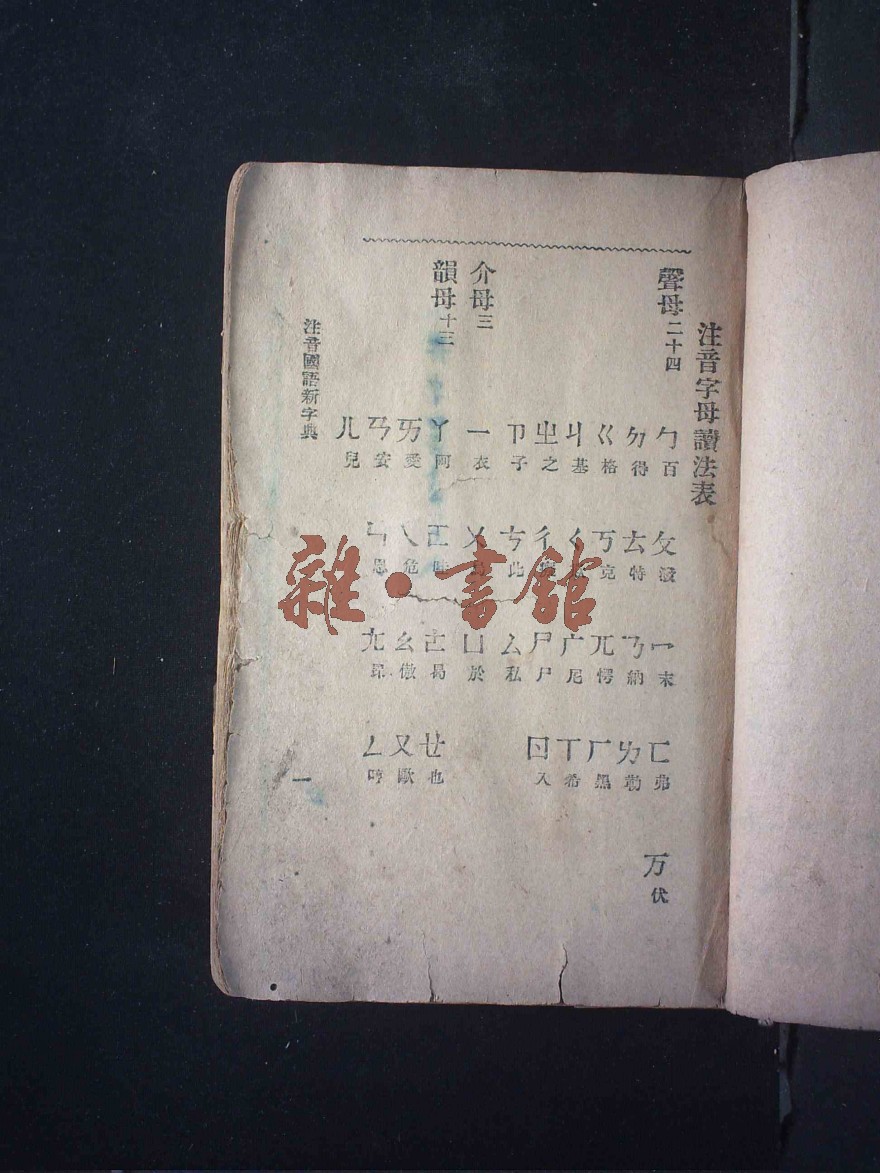 注音字母讀法表
聲母二十四 ㄅ百 ㄆ潑 ㄇ末 ㄈ弗 ㄪ伏
ㄉ得 ㄊ特 ㄋ納 ㄌ勒
ㄍ格 ㄎ克 ㄫ愕 ㄏ黑
ㄐ基 ㄑ ㄬ尼 ㄒ希
ㄓ之 ㄔ ㄕ尸 ㄖ入
ㄗ子 ㄘ此 ㄙ私
介母三 ㄧ衣 ㄨ ㄩ於
韻母十三 ㄚ阿 ㄛ ㄜ曷 ㄝ也
ㄞ愛 ㄟ危 ㄠ傲 ㄡ歐
ㄢ安 ㄣ恩 ㄤ昂 ㄥ哼
ㄦ兒
注音國語新字典
一
雜·書館